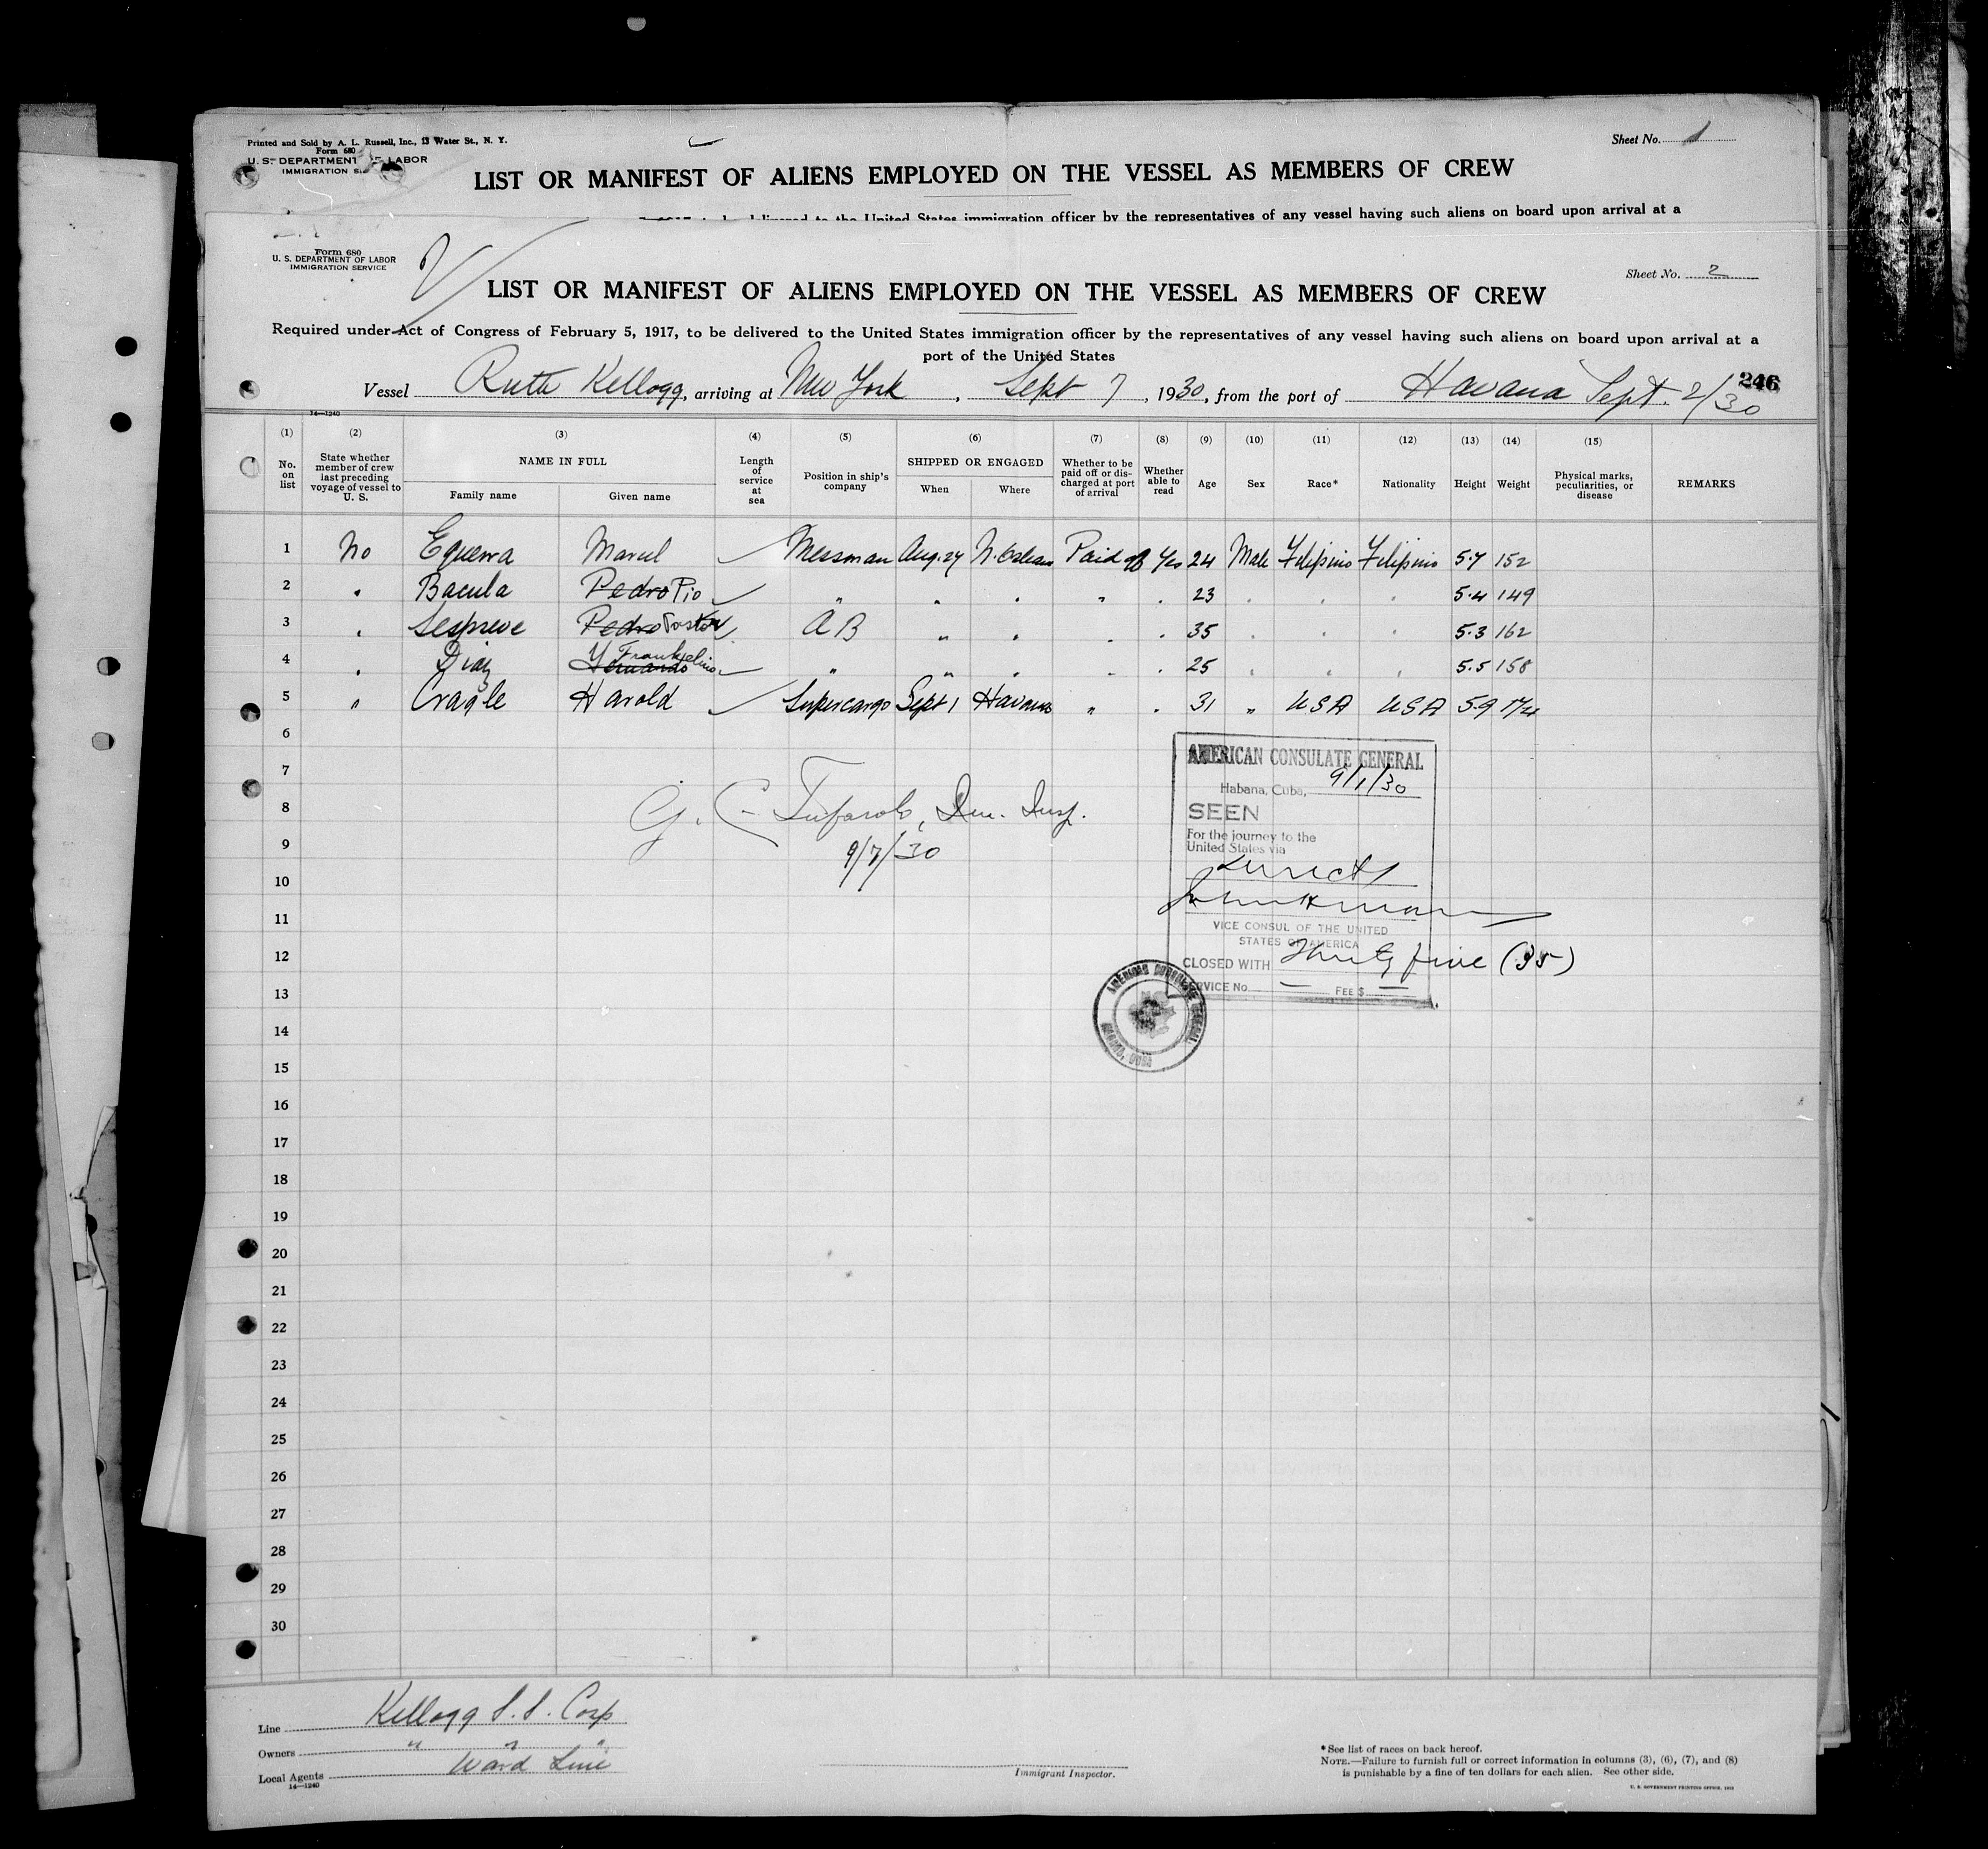 Printed and Sold by A. L. Russell, Inc., 13 Water St., N. Y.
Form 680
U. S. DEPARTMENT OF LABOR
IMMIGRATION
Sheet No. 1
LIST OR MANIFEST OF ALIENS EMPLOYED ON THE VESSEL AS MEMBERS OF CREW
to be delivered to the United States immigration officer by the representatives of any vessel having such aliens on board upon arrival at a
Form 680
U. S. DEPARTMENT OF LABOR
IMMIGRATION SERVICE
Sheet No. 2
LIST OR MANIFEST OF ALIENS EMPLOYED ON THE VESSEL AS MEMBERS OF CREW
Required under Act of Congress of February 5, 1917, to be delivered to the United States immigration officer by the representatives of any vessel having such aliens on board upon arrival at a
port of the United States
246
Vessel Ruth Kellogg, arriving at New York, Sept 7, 1930, from the port of Havana Sept. 2/30
14—1240
(1) (2) (3) (4) (5) (6) (7) (8) (9) (10) (11) (12) (13) (14) (15)
No. on list
State whether member of crew last preceding voyage of vessel to U. S.
NAME IN FULL
Family name Given name
Length of service at sea
Position in ship's company
SHIPPED OR ENGAGED
When Where
Whether to be paid off or discharged at port of arrival
Whether able to read
Age Sex Race* Nationality Height Weight
Physical marks, peculiarities, or disease
REMARKS
1 No Eguerra Marcel Messman Aug. 27 N. Orleans Paid off Yes 24 Male Filipino Filipino 5.7 152
2 " Bacula Pedro Pio " " " " " 23 " " " 5.4 149
3 " Pedro A B " " " " 35 " " " 5.3 162
4 " Diaz " " " " " 25 " " " 5.5 158
5 " Cragle Harold Supercargo Sept 1 Havana " " 31 " USA USA 5.9 174
6
7
8
9
10
11
12
13
14
15
16
17
18
19
20
21
22
23
24
25
26
27
28
29
30
9/7/30
AMERICAN CONSULATE GENERAL
Habana, Cuba, 9/1/30
SEEN
For the journey to the
United States via
Direct
VICE CONSUL OF THE UNITED
STATES OF AMERICA
CLOSED WITH Thirty five (35)
SERVICE No. — FEE $ —
AMERICAN CONSULATE GENERAL
HABANA, CUBA
Line Kellogg S. S. Corp
Owners " " "
Local Agents Ward Line
14—1240
Immigrant Inspector.
*See list of races on back hereof.
NOTE.—Failure to furnish full or correct information in columns (3), (6), (7), and (8)
is punishable by a fine of ten dollars for each alien. See other side.